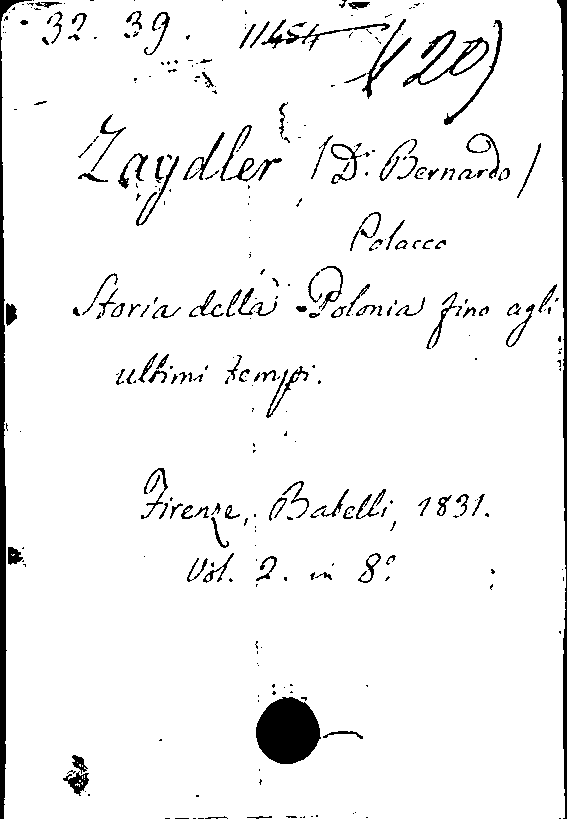 32. 39. 11454 (20)
Zaydler (Dr. Bernardo)
Polacco
Storia della Polonia fino agli
ultimi tempi.
Firenze, Batelli, 1831.
Vol. 2. in 8º